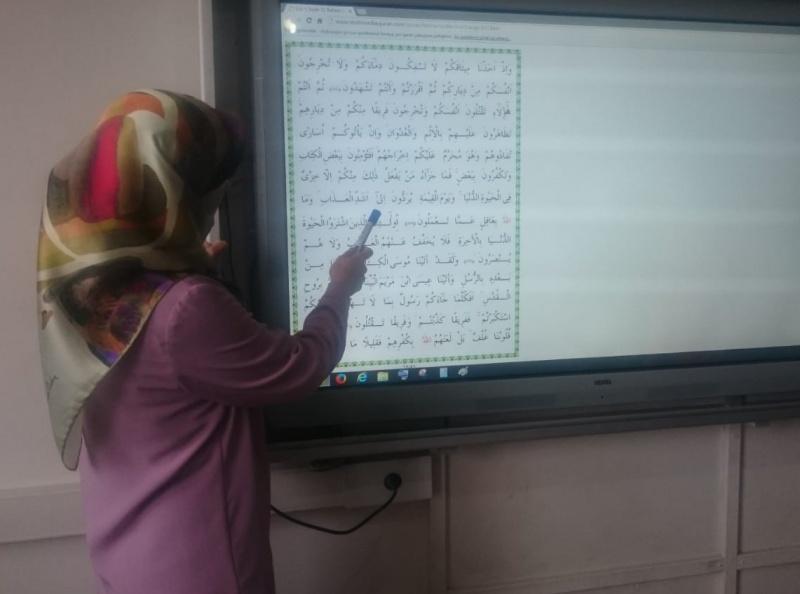 وَاِذْ اَخَذْنَا مِيثَاقَكُمْ لَا تَسْفِكُونَ دِمَاءَكُمْ وَلَا تُخْرِجُونَ
اَنْفُسَكُمْ مِنْ دِيَارِكُمْ ثُمَّ اَقْرَرْتُمْ وَاَنْتُمْ تَشْهَدُونَ ثُمَّ اَنْتُمْ
هٰؤُلَاءِ تَقْتُلُونَ اَنْفُسَكُمْ وَتُخْرِجُونَ فَرِيقًا مِنْكُمْ مِنْ دِيَارِهِمْ
تَظَاهَرُونَ عَلَيْهِمْ بِالْاِثْمِ وَالْعُدْوَانِ وَاِنْ يَأْتُوكُمْ اُسَارٰى
تُفَادُوهُمْ وَهُوَ مُحَرَّمٌ عَلَيْكُمْ اِخْرَاجُهُمْ اَفَتُؤْمِنُونَ بِبَعْضِ الْكِتَابِ
وَتَكْفُرُونَ بِبَعْضٍ فَمَا جَزَاءُ مَنْ يَفْعَلُ ذٰلِكَ مِنْكُمْ اِلَّا خِزْىٌ
فِى الْحَيٰوةِ الدُّنْيَا وَيَوْمَ الْقِيٰمَةِ يُرَدُّونَ اِلٰى اَشَدِّ الْعَذَابِ وَمَا
اللّٰهُ بِغَافِلٍ عَمَّا تَعْمَلُونَ اُولٰئِكَ الَّذِينَ اشْتَرَوُا الْحَيٰوةَ
الدُّنْيَا بِالْاٰخِرَةِ فَلَا يُخَفَّفُ عَنْهُمُ وَلَا هُمْ
يُنْصَرُونَ وَلَقَدْ اٰتَيْنَا مُوسَى مِنْ
بَعْدِهِ بِالرُّسُلِ وَاٰتَيْنَا عِيسَى ابْنَ مَرْيَمَ بِرُوحِ
الْقُدُسِ اَفَكُلَّمَا جَاءَكُمْ رَسُولٌ بِمَا لَا
اسْتَكْبَرْتُمْ فَفَرِيقًا كَذَّبْتُمْ وَفَرِيقًا تَقْتُلُونَ
قُلُوبُنَا غُلْفٌ بَلْ لَعَنَهُمُ اللّٰهُ بِكُفْرِهِمْ فَقَلِيلًا مَا